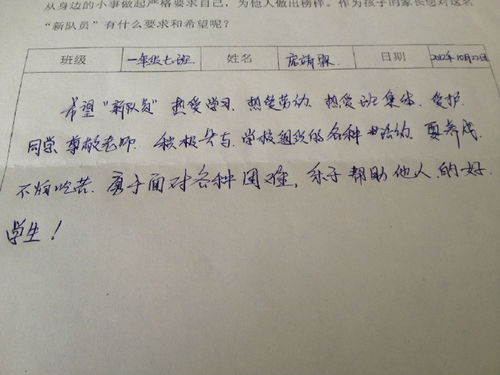 从身边的小事做起严格要求自己，为他人做出榜样。作为孩子的家长您对这名
“新队员”有什么要求和希望呢？
班级 一年级七班 姓名 日期 2012年10月22日
希望“新队员”热爱学习、热爱劳动、热爱班集体、爱护
同学、尊敬老师、积极参与学校组织的各种活动、要养成
不怕吃苦、勇于面对各种困难，乐于帮助他人的好
学生！